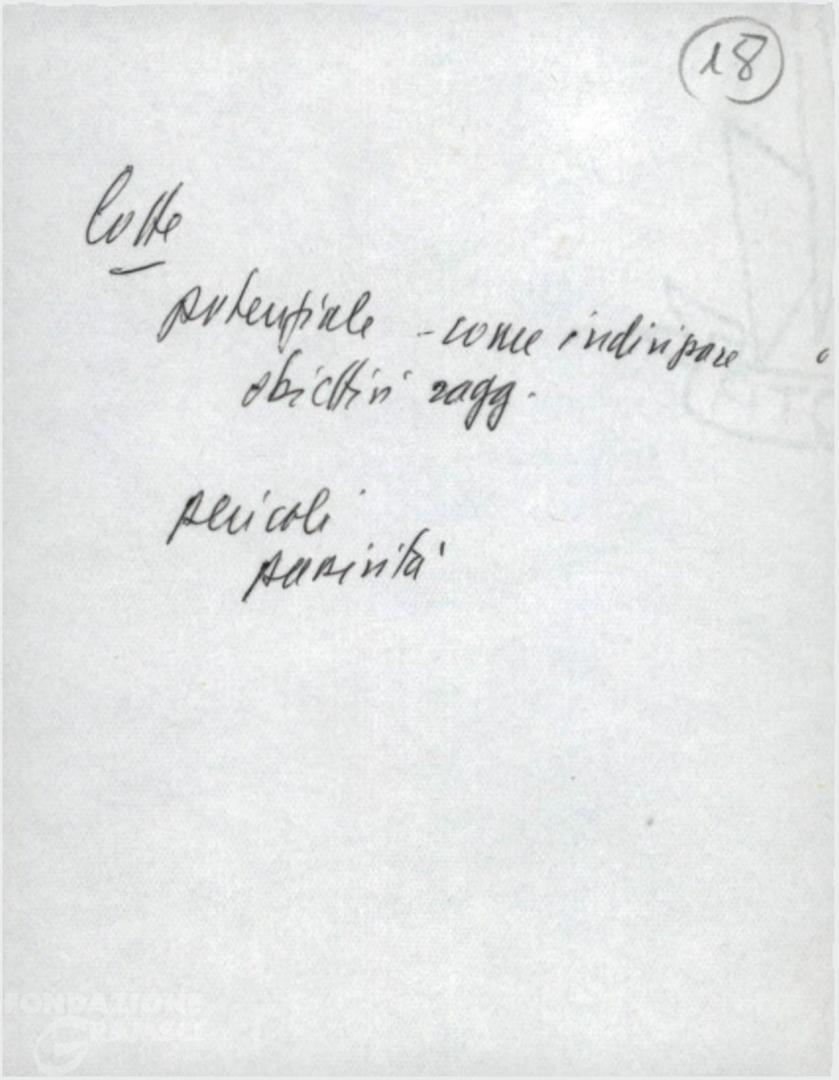 18
lotte
potenziale - come indirizzare
obiettivi ragg.
pericoli
passività
FONDAZIONE
GRAMSCI